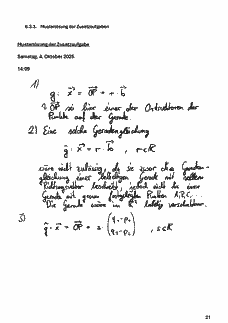 6.3.3. Musterlösung der Zusatzaufgaben
Musterlösung der Zusatzaufgabe
Samstag, 4. Oktober 2025
14:09
1)
g: x = OP + r · b
OP sei hier einer der Ortsvektoren der
Punkte auf der Gerade.
2) Eine solche Geradengleichung
g: x = r · b , r∈R
wäre nicht zulässig, da sie zwar eine Geraden-
gleichung einer beliebigen Gerade mit
Richtungsvektor beschreibt, jedoch nicht die einer
Gerade mit genau festgelegten Punkten A, P, C ...
Die Gerade wäre im R³ beliebig verschiebbar.
3)
g: x = OP + s · (q₁-p₁ q₂-p₂) , s∈R
21